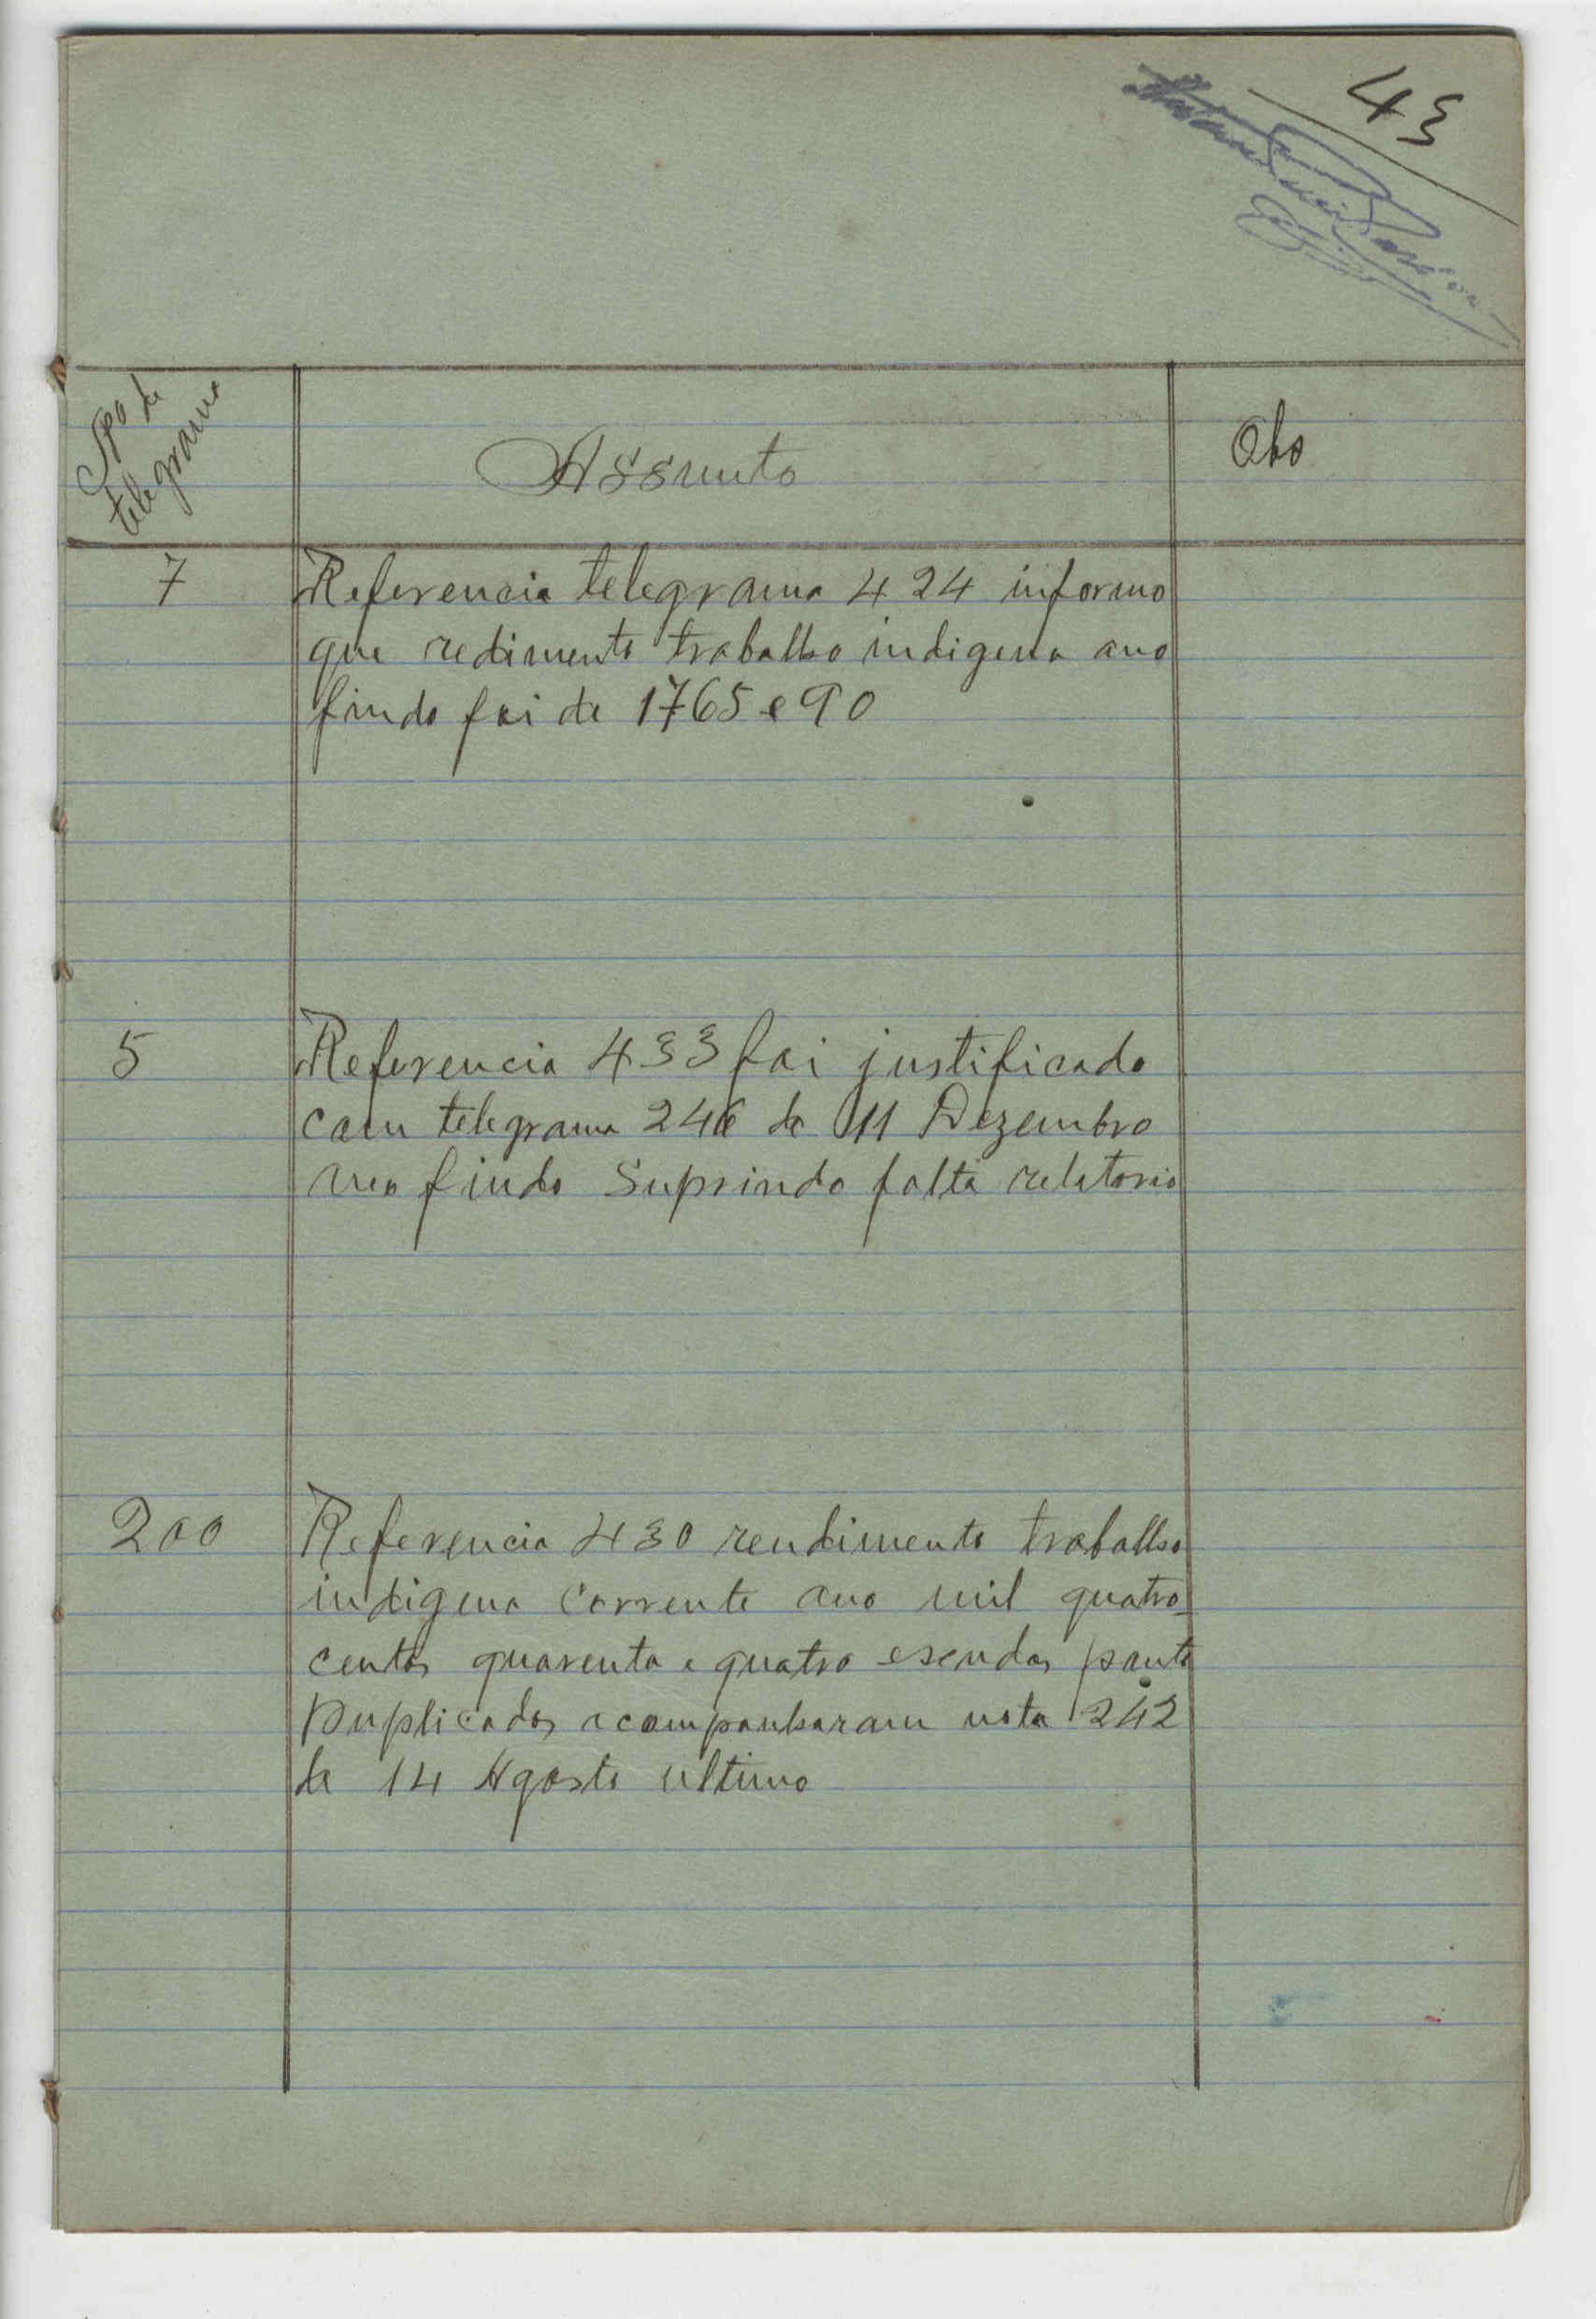 43
telegrama
Assunto
Obs
7
Referencia telegrama 424 informo
que redimento trabalho indigena ano
findo foi de 1765 e 90
5
Referencia 433 foi justificado
com telegrama 246 de 11 Dezembro
findo Suprindo falta relatorio
200
Referencia 430 rendimento trabalho
indigena corrente ano mil quatro-
centos quarenta e quatro escudos ponto
Duplicados acompanharam nota 242
de 14 Agosto ultimo